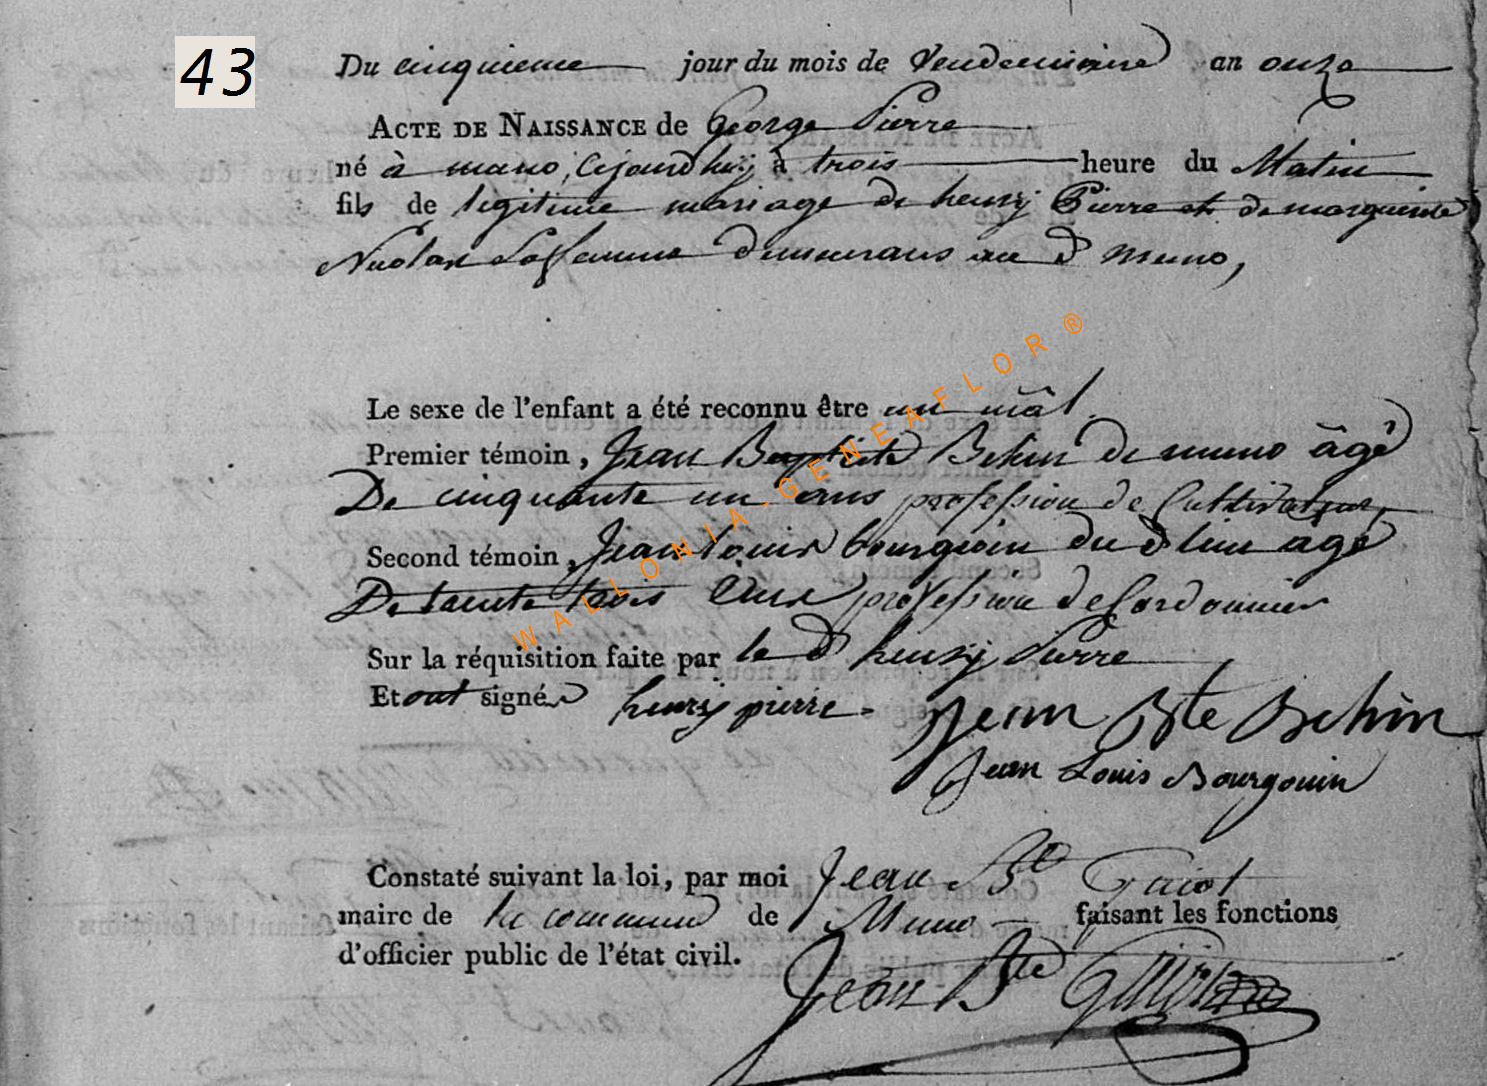 43
Du cinquieme jour du mois de Vendemiaire an onze
ACTE DE NAISSANCE de George Pierre
né à muno, cejourdhuy à trois heure du Matin
fils de legitime mariage de henry Pierre et de marguerite
Nicolas Sa femme demeurans au d muno,
Le sexe de l'enfant a été reconnu être un mâl.
Premier témoin, Jean Baptiste Behin de muno âgé
De cinquante un ans profession de Cultivateur,
Second témoin, Jean louis bourgoin du d lieu agé
De trente trois Ans profession de Cordonnier
Sur la réquisition faite par le d henry Pierre
Et ont signé henry pierre. Jean Bte Behin
Jean Louis Bourgouin
Constaté suivant la loi, par moi Jean Bte Guiot
maire de la commune de Muno faisant les fonctions
d'officier public de l'état civil. Jean Bte Guiot
WALLONIA-GENEAFLOR®